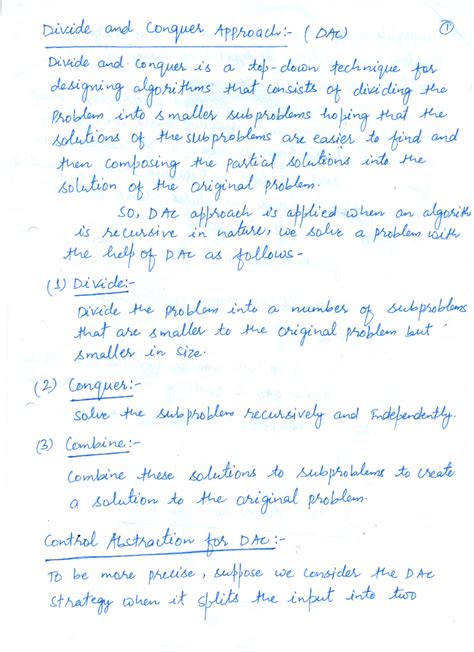 Divide and Conquer Approach:- (DAC)
1
Divide and Conquer is a top-down technique for
designing algorithms that consists of dividing the
Problem into smaller subproblems hoping that the
solutions of the subproblems are easier to find and
then composing the partial solutions into the
solution of the original problem.
So, DAC approach is applied when an algorith
is recursive in nature, we solve a problem with
the help of DAC as follows-
(1) Divide:-
Divide the problem into a number of subproblems
that are smaller to the original problem but
smaller in size.
(2) Conquer:-
Solve the subproblem recursively and Independently.
(3) Combine:-
Combine these solutions to subproblems to create
a solution to the original problem.
Control Abstraction for DAC:-
To be more precise, suppose we consider the DAC
strategy when it splits the input into two